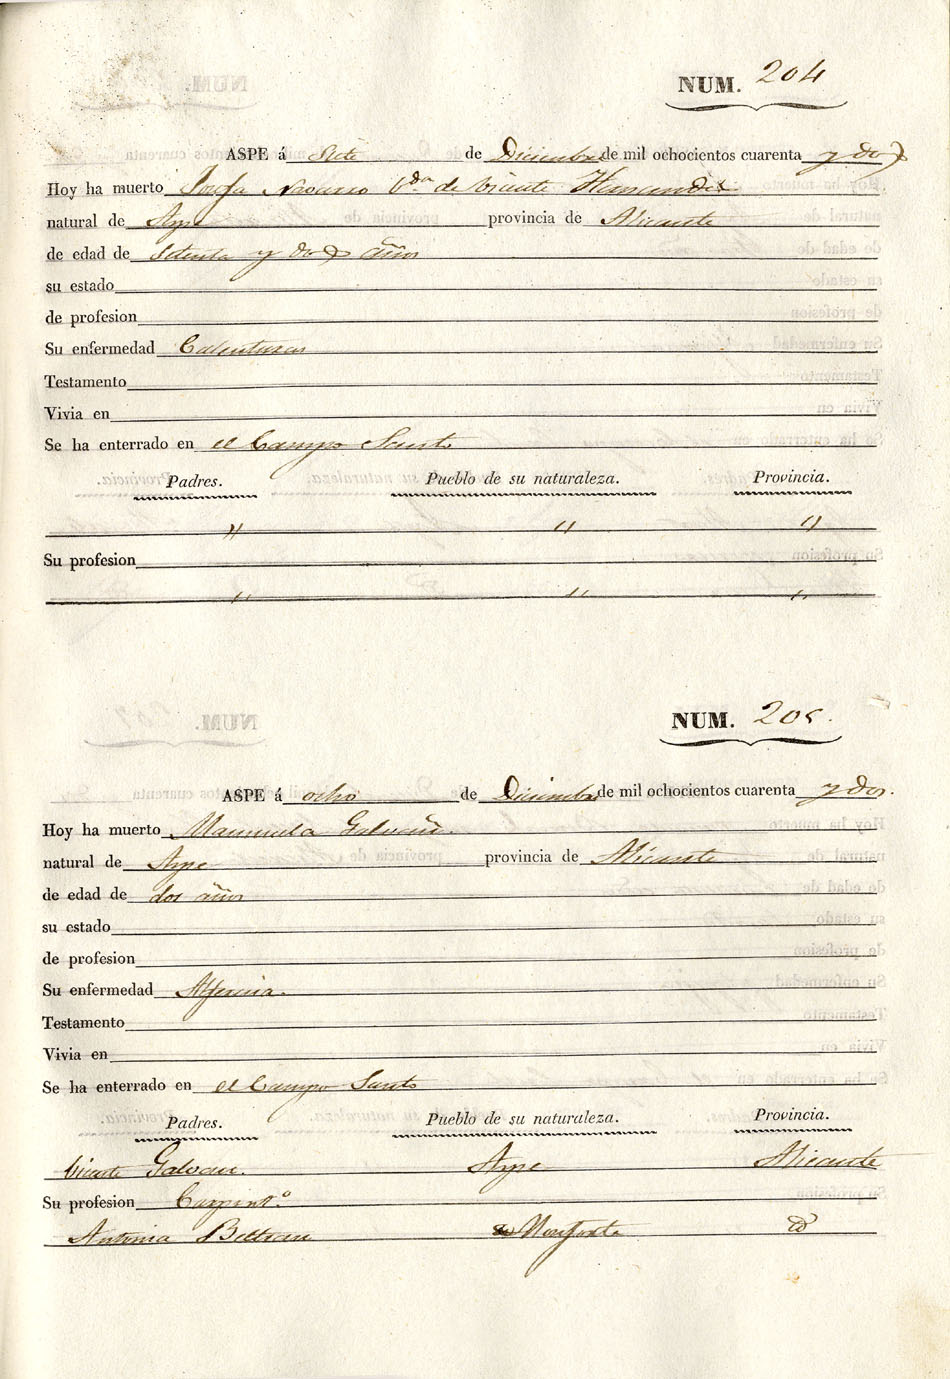 NUM. 204
ASPE á Siete de Diciembre de mil ochocientos cuarenta y dos
Hoy ha muerto Josefa Navarro V.da de Vicente Hernandez
natural de Aspe provincia de Alicante
de edad de Setenta y dos años
su estado
de profesion
Su enfermedad Calenturas
Testamento
Vivia en
Se ha enterrado en el Campo Santo
Padres. Pueblo de su naturaleza. Provincia.
" " "
Su profesion
" " "
NUM. 205.
ASPE á ocho de Diciembre de mil ochocientos cuarenta y dos.
Hoy ha muerto Manuela Galvañ.
natural de Aspe provincia de Alicante
de edad de dos años
su estado
de profesion
Su enfermedad Alferecia.
Testamento
Vivia en
Se ha enterrado en el Campo Santo
Padres. Pueblo de su naturaleza. Provincia.
Vicente Galvañ. Aspe Alicante
Su profesion Carpint.o
Antonia Beltran Monforte id